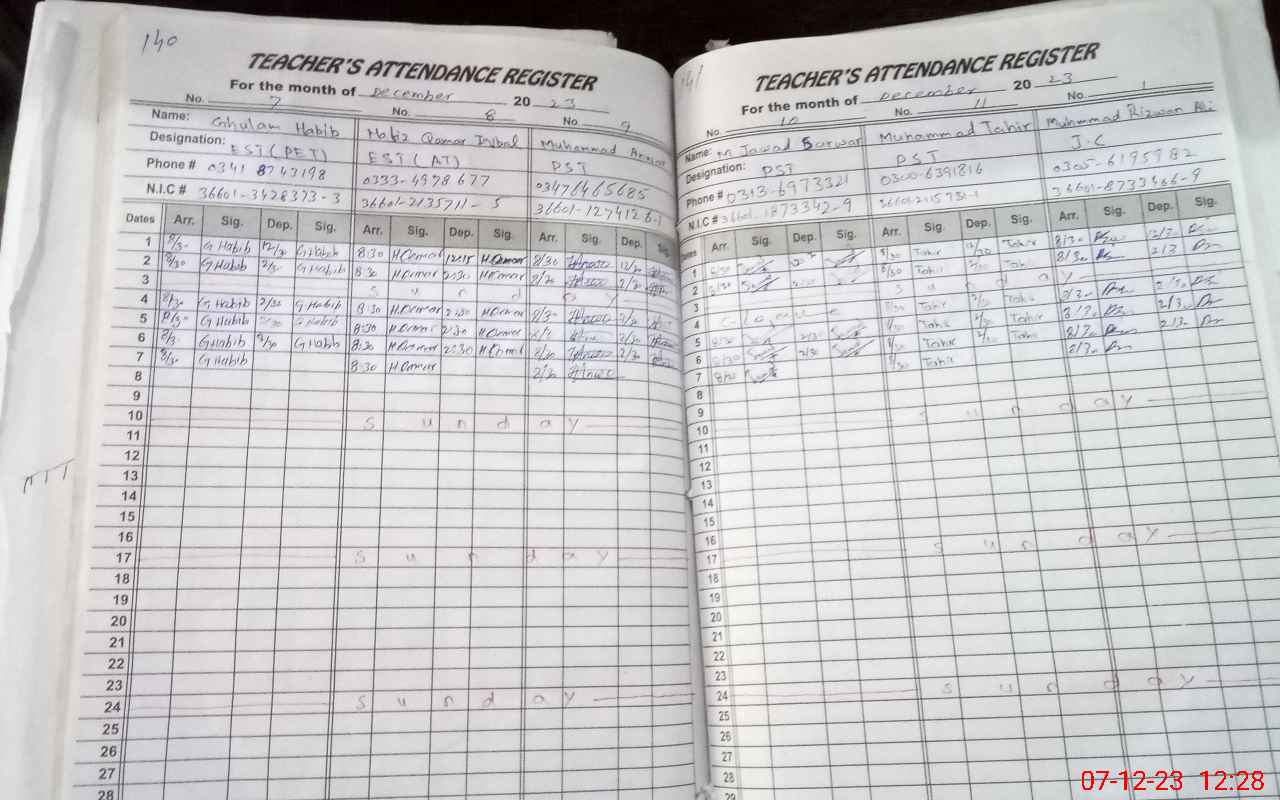 140
TEACHER'S ATTENDANCE REGISTER
For the month of December 20 23
No. 7 No. 8 No. 9
Name: Ghulam Habib Hafiz Qamar Iqbal Muhammad
Designation: EST (PET) EST (AT) PST
Phone # 0341 8743198 0333-4978677 03476465685
N.I.C # 36601-3428373-3 36601-2135711-5 36601-1274126-1
Dates Arr. Sig. Dep. Sig. Arr. Sig. Dep. Sig. Arr. Sig. Dep. Sig.
1 8/30 G Habib 12/30 G Habib 8:30 H Qamar 12:15 H Qamar 8/30 12/30
2 8/30 G Habib 2/30 G Habib 8:30 H Qamar 2:30 H Qamar 8/30 2/30
3 S u n d a y
4 8/30 G Habib 2/30 G Habib 8:30 H Qamar 2:30 H Qamar 8/30 2/30
5 8/30 G Habib 2/30 G Habib 8:30 H Qamar 2:30 H Qamar 2/30
6 8/30 G Habib 2/30 G Habib 8:30 H Qamar 2:30 H Qamar 8/30 2/30
7 8/30 G Habib 8:30 H Qamar
8
9
10 S u n d a y
11
12
13
14
15
16
17 S u n d a y
18
19
20
21
22
23
24 S u n d a y
25
26
27
28
141
TEACHER'S ATTENDANCE REGISTER
For the month of December 20 23
No. 10 No. 11 No. 1
Name: M Jawad Sarwar Muhammad Tahir Muhmmad Rizwan Ali
Designation: PST PST J.C
Phone # 0313-6973321 0300-6391816 0305-6195982
N.I.C # 36601-1873342-9 36601-8733466-9
Dates Arr. Sig. Dep. Sig. Arr. Sig. Dep. Sig. Arr. Sig. Dep. Sig.
1 8/30 8/30 Tahir 12/30 Tahir 8/30 12/30
2 8/30 8/30 Tahir 2/30 Tahir 8/30 2/30
3 S u n d a y
4 8/30 Tahir 2/30 Tahir 8/30 2/30
5 8/30 2/30 8/30 Tahir 2/30 Tahir 8/30 2/30
6 8/30 2/30 8/30 Tahir 2/30 Tahir 8/30 2/30
7 8/30 8/30 Tahir 8/30
8
9
10 S u n d a y
11
12
13
14
15
16
17 S u n d a y
18
19
20
21
22
23
24 S u n d a y
25
26
27
28
29
07-12-23 12:28